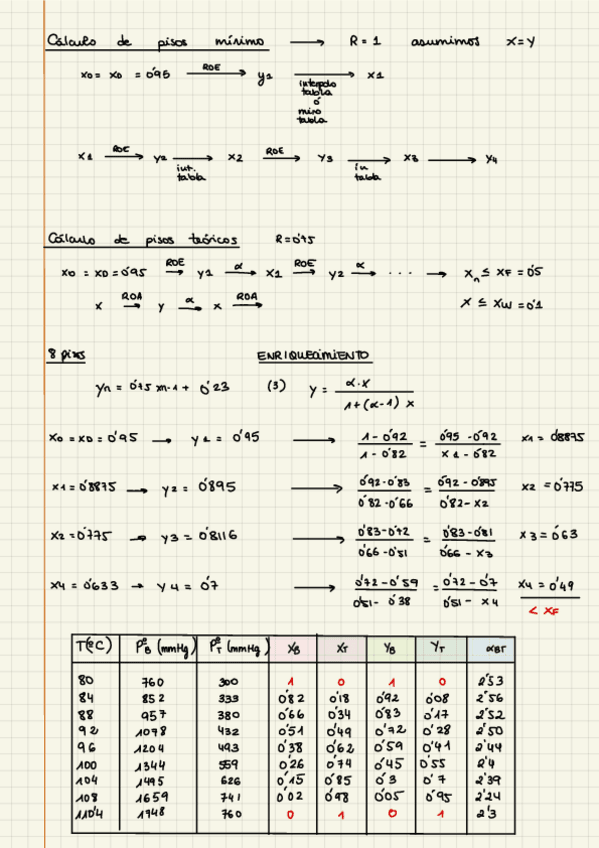 Cálculo de pisos mínimo → R = 1 asumimos X=Y
X0= XD = 0'95 ROE → y1 interpolo tabla ó miro tabla → X1
X1 ROE → y2 int. tabla → X2 ROE → y3 in tabla → X3 → y4
Cálculo de pisos teóricos R=0'75
X0 = XD=0'95 ROE → y1 α → X1 ROE → y2 α → ... → Xn ≤ XF =0'5
X ROA → y α → x ROA → X ≤ XW =0'1
8 pisos ENRIQUECIMIENTO
yn = 0'75 xn-1 + 0'23 (3) y = α·x / 1+(α-1) x
X0 = XD = 0'95 → y1 = 0'95 → 1-0'92 / 1-0'82 = 0'95-0'92 / X1-0'82 X1= 0'8875
X1= 0'8875 → y2 = 0'895 → 0'92-0'83 / 0'82-0'66 = 0'92-0'895 / 0'82-X2 X2 =0'775
X2=0'775 → y3 = 0'8116 → 0'83-0'72 / 0'66-0'51 = 0'83-0'81 / 0'66-X3 X3=0'63
X4=0'633 → y4 = 0'7 → 0'72-0'59 / 0'51-0'38 = 0'72-0'7 / 0'51-X4 X4= 0'49
< XF
T(ºC) PºB (mmHg) PºT (mmHg) XB XT YB YT αBT
80 760 300 1 0 1 0 2'53
84 852 333 0'82 0'18 0'92 0'08 2'56
88 957 380 0'66 0'34 0'83 0'17 2'52
92 1078 432 0'51 0'49 0'72 0'28 2'50
96 1204 493 0'38 0'62 0'59 0'41 2'44
100 1344 559 0'26 0'74 0'45 0'55 2'4
104 1495 626 0'15 0'85 0'3 0'7 2'39
108 1659 741 0'02 0'98 0'05 0'95 2'24
110'4 1748 760 0 1 0 1 2'3